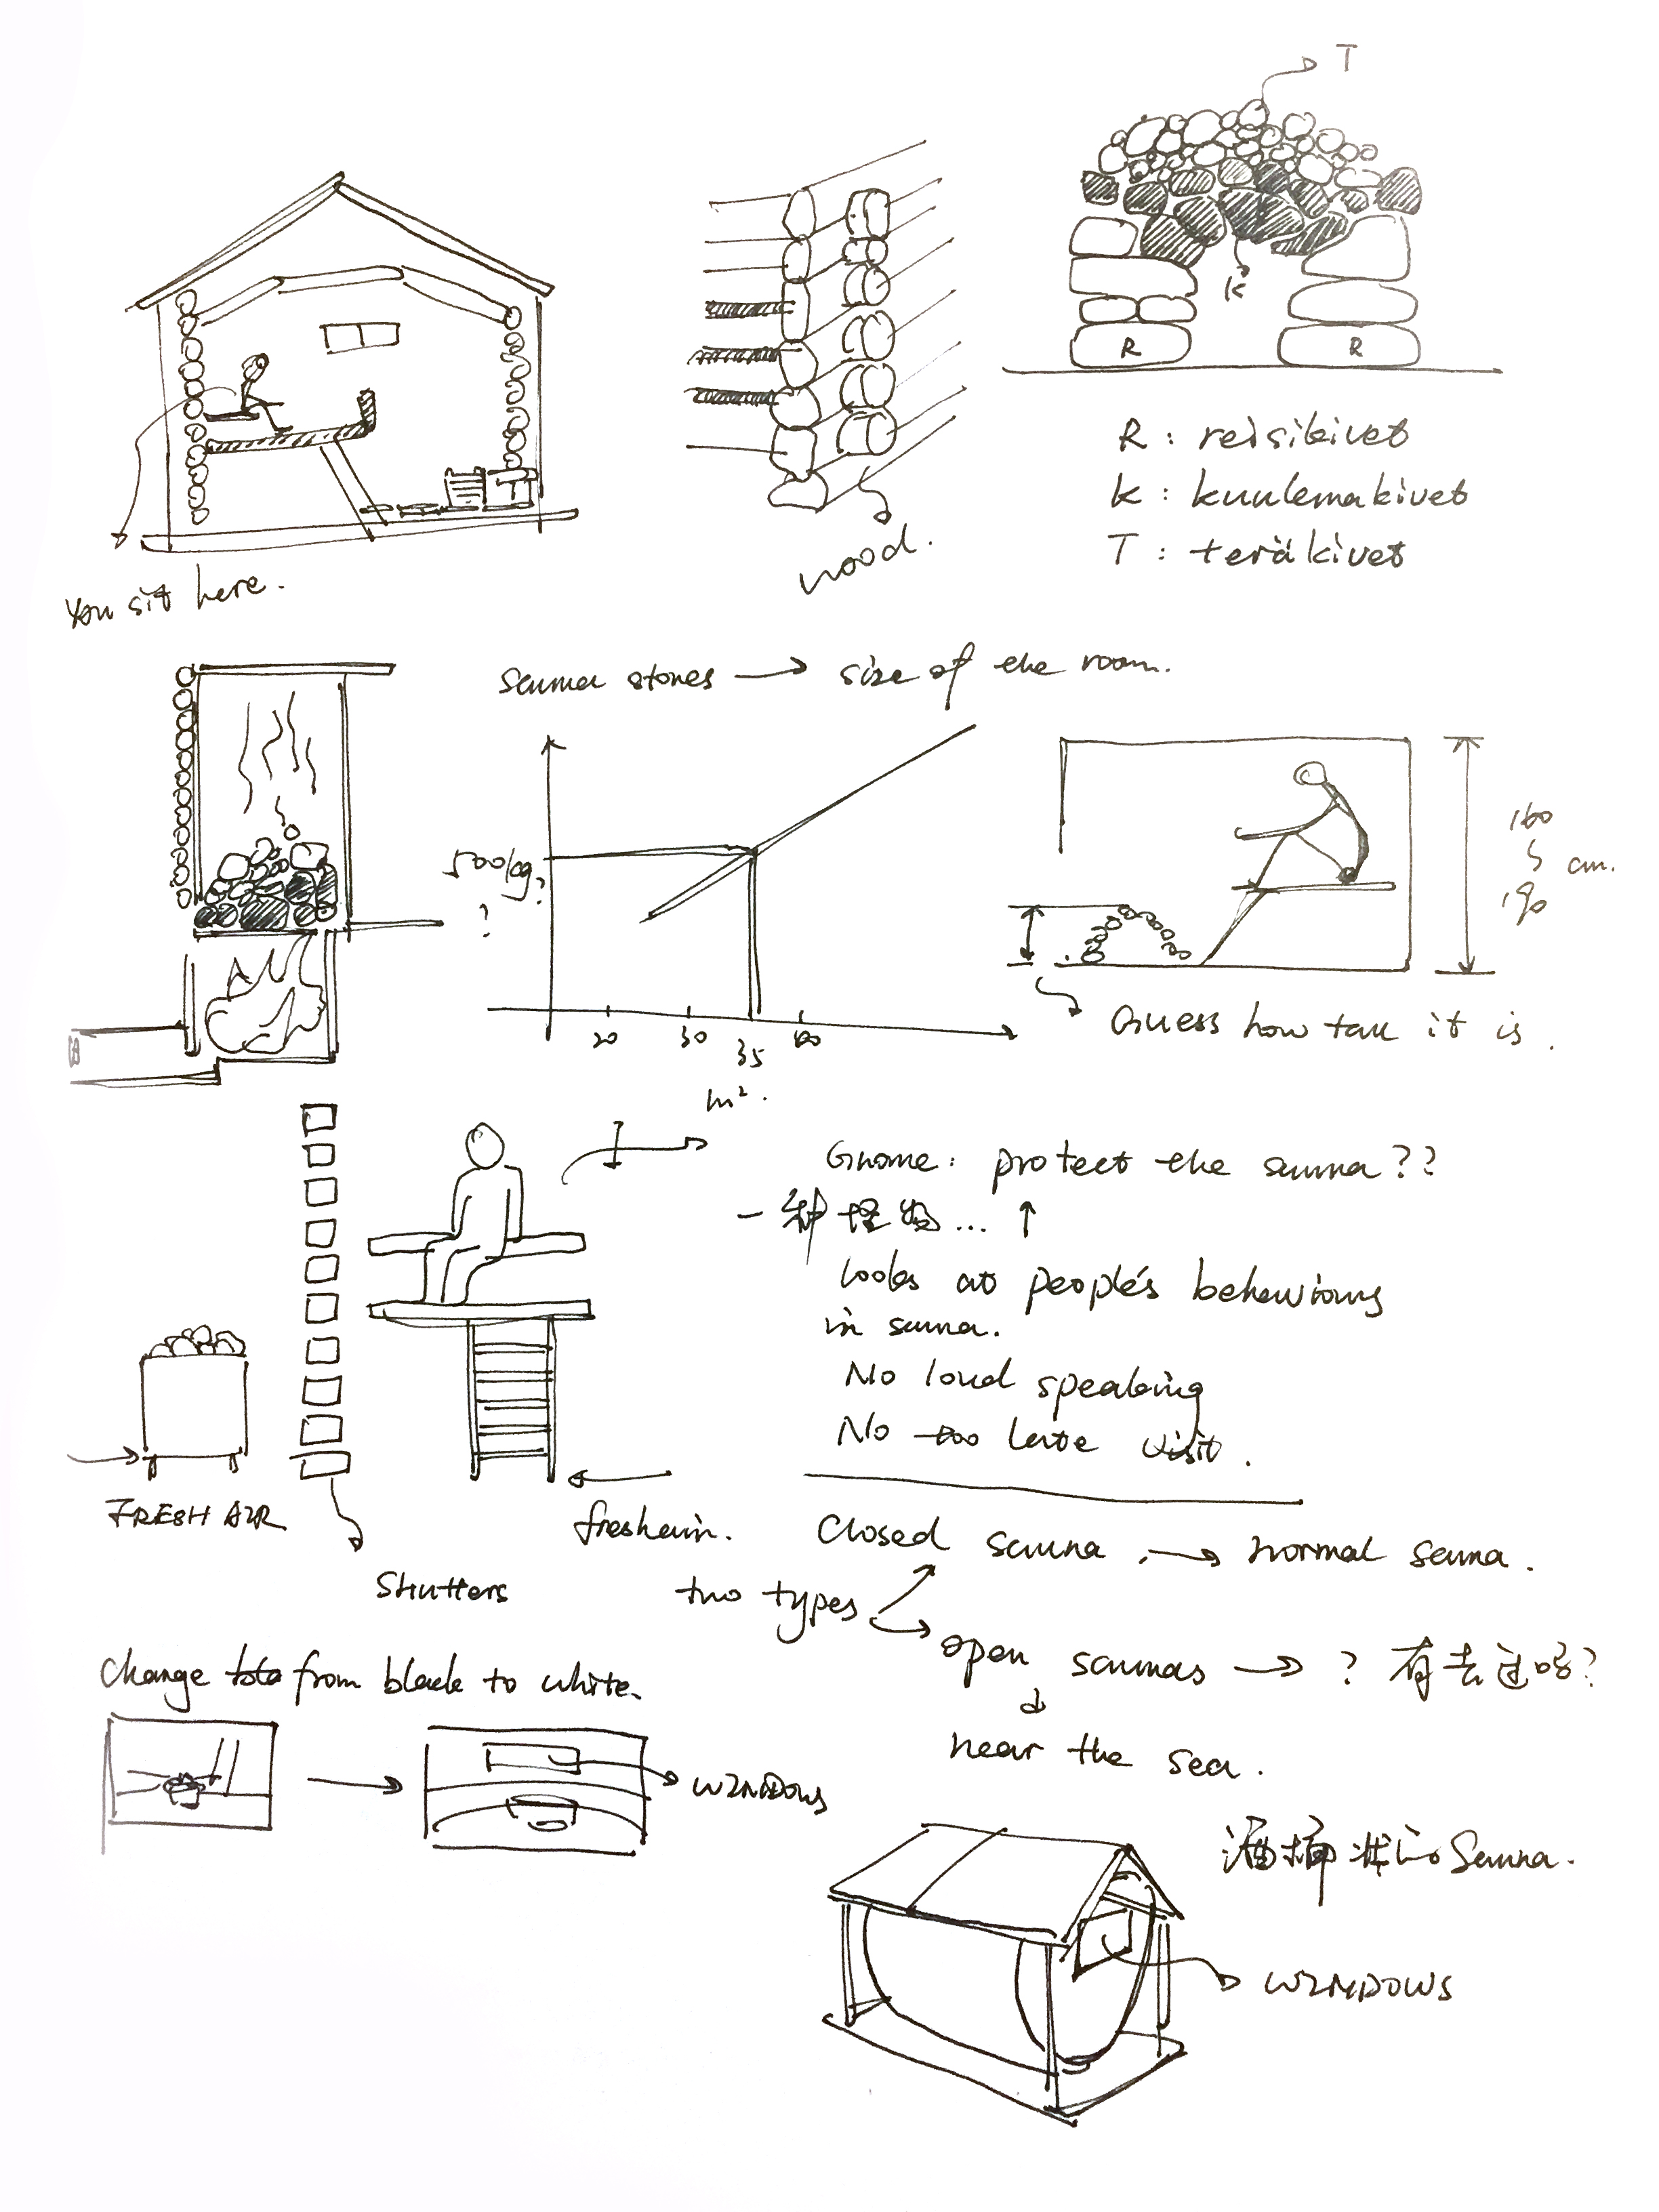 T
K
R
R
R : reisikivet
K : kuulemakivet
T : teräkivet
wood.
You sit here.
Sauna stones → size of the room.
500kg?
?
20 30 35 40
m².
160
190
cm.
Guess how tall it is.
Gnome: protect the sauna??
一种怪物... ↑
looks at people's behaviours
in sauna.
No loud speaking
No too late visit.
FRESH AIR
fresh air.
Shutters
two types
Closed sauna. → normal sauna.
open saunas → ? 有去过哈?
near the sea.
Change from black to white.
WINDOWS
酒桶状的 Sauna.
WINDOWS